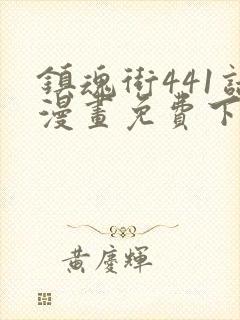 鎮魂街441
漫畫免費下
黃慶輝